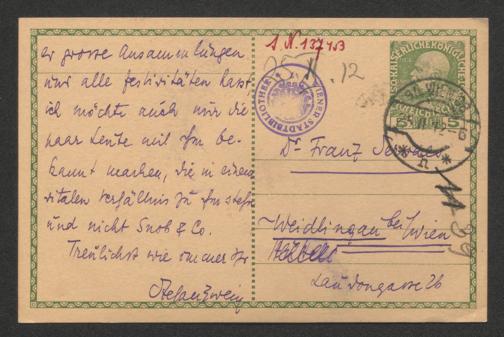 er grosse Ansammlungen
und alle Festivitäten hasst
ich möchte auch nur die
paar Leute mit ihm be-
kannt machen, die in einem
vitalen Verhältnis zu ihm stehn
und nicht Snob & Co.
Treulichst wie immer Ihr
Stefan Zweig
I. N. 137453
25.V.12
WIENER STADTBIBLIOTHEK
5
Dr Franz
Weidlingau bei Wien
Laudongasse 26